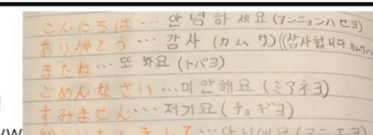 こんにちは…안녕하세요(アンニョンハセヨ)
ありがとう…감사(カムサ)((감사합니다
またね…또 봐요(トバヨ)
ごめんなさい…미안해요(ミアネヨ)
すみません…저기요(チョギヨ)